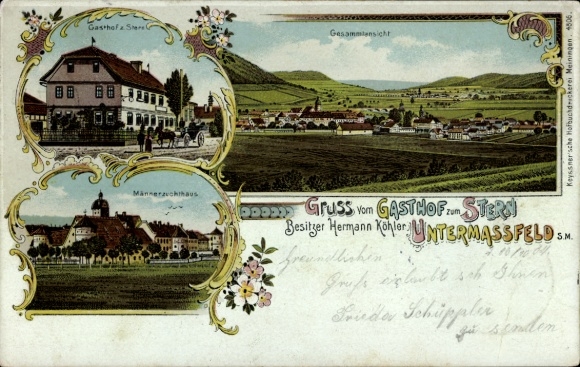 Gasthof z. Stern
Gesammtansicht
Keyssner'sche Hofbuchdruckerei Meiningen. 4606.
Männerzuchthaus
Gruss vom Gasthof zum Stern
Besitzer Hermann Köhler.
Untermassfeld
S.M.
Freundlichen
Gruß erlaubt sich Ihnen
Frieda Schüppler
zu senden